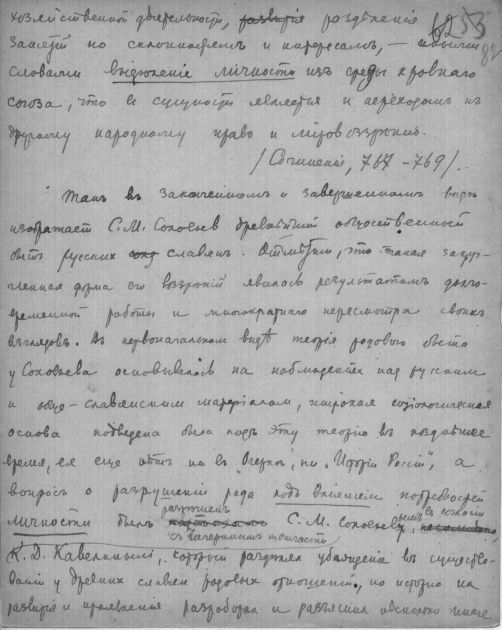 хозяйственной деятельности, развитія раздѣленія
занятій по склонностямъ и интересамъ, – иными
словами выдѣленіе личности изъ среды кровнаго
союза, что въ сущности является и переходомъ къ
другому народному праву и міровоззрѣнію.
/Сочиненія, 767–769/.
Такъ въ законченномъ и завершенномъ видѣ
изображаетъ С. М. Соловьевъ древнѣйшій общественный
бытъ русскихъ славянъ. Отмѣтимъ, что такая
форма его воззрѣній явилась результатомъ долго-
временной работы и многократнаго пересмотра своихъ
взглядовъ. Въ первоначальномъ видѣ теорія родового быта
у Соловьева основывалась на наблюденіяхъ надъ русскимъ
и обще-славянскимъ матеріаломъ, широкая соціологическая
основа подведена была подъ эту теорію въ позднѣйшее
время, ея еще нѣтъ ни въ "Очеркѣ", ни "Исторіи Россіи", а
вопросъ о разрушеніи рода подъ вліяніемъ потребностей
личности былъ С. М. Соловьевымъ, въ согласіи
съ
К. Д. Кавелинымъ, который раздѣлялъ убѣжденіе въ существо-
ваніи у древнихъ славянъ родовыхъ отношеній, но исторію ихъ
развитія и проявленія разобралъ и разъяснилъ нѣсколько иначе